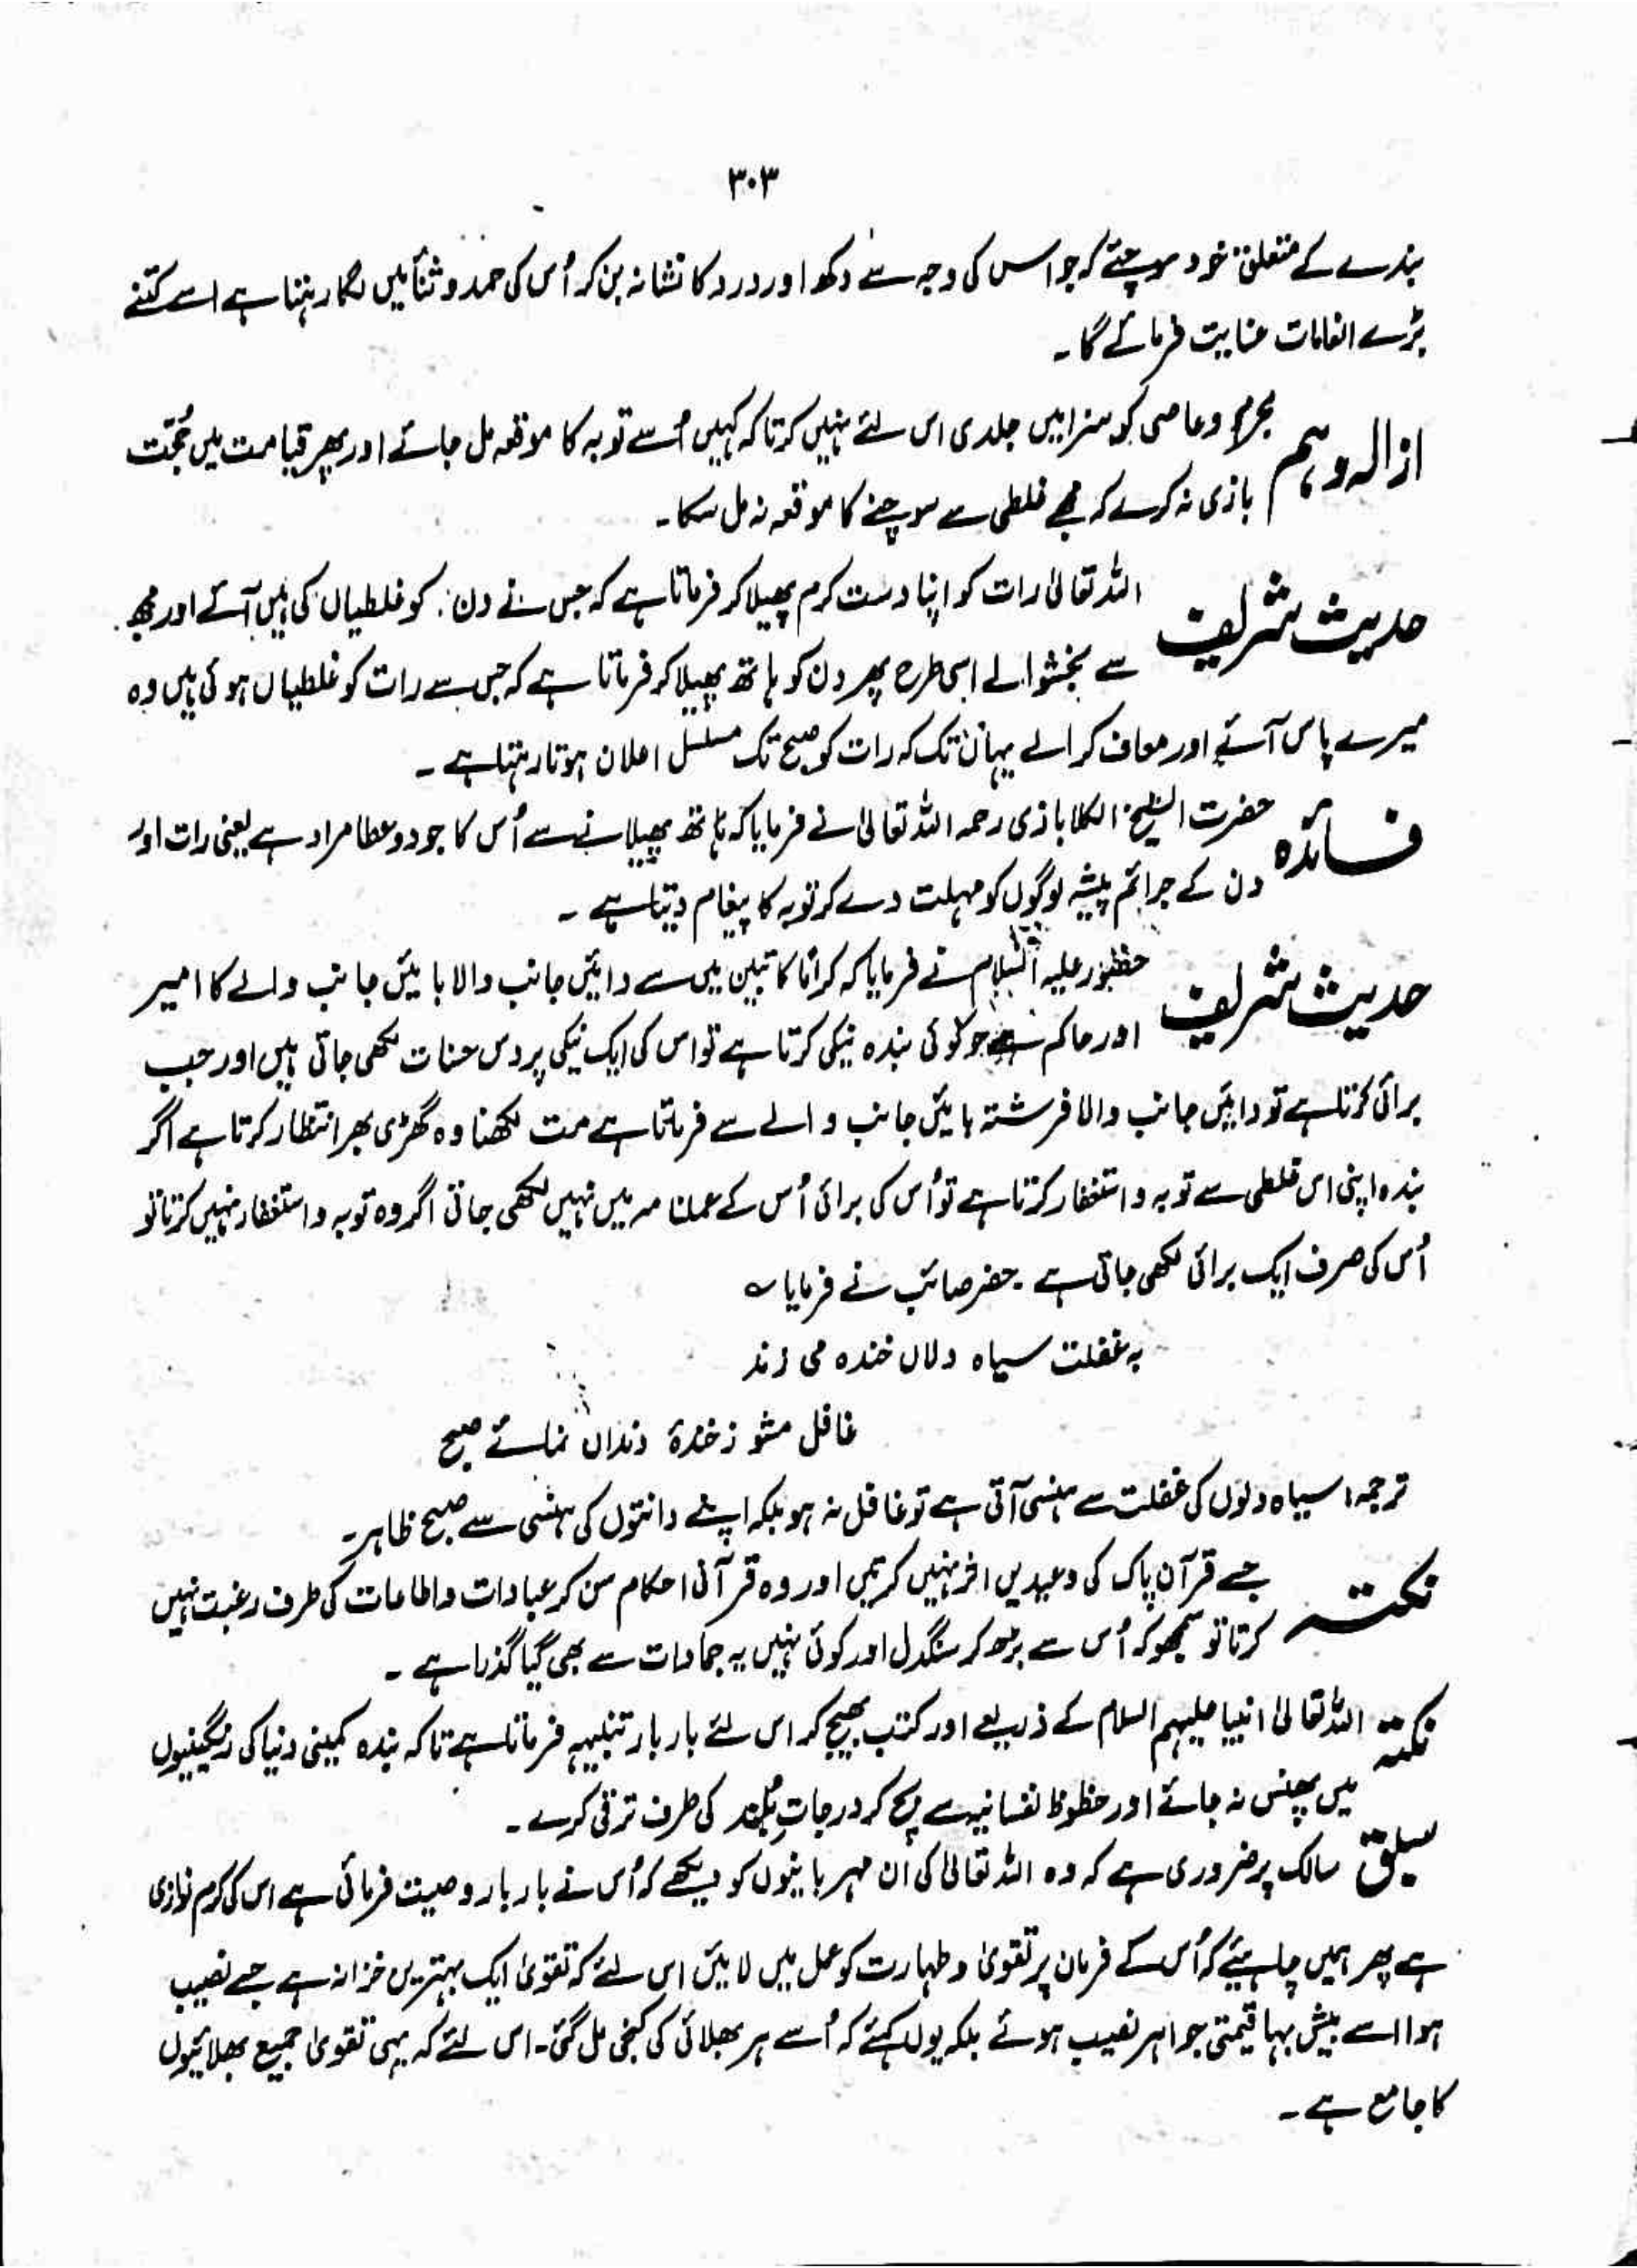 ۳۰۳
بندے کے متعلق خود سوچئے کہ جو اس کی وجہ سے دکھ اور درد کا نشانہ بن کر اُس کی حمد و ثنا میں لگا رہتا ہے اسے کتنے
بڑے انعامات عنایت فرمائے گا۔
ازالہ وہم مجرم و عاصی کو سزا میں جلدی اس لئے نہیں کرتا کہ کہیں اُسے توبہ کا موقعہ مل جائے اور پھر قیامت میں حُجّت
بازی نہ کرے کہ مجھے غلطی سے سوچنے کا موقعہ نہ مل سکا۔
حدیث شریف اللہ تعالیٰ رات کو اپنا دست کرم پھیلا کر فرماتا ہے کہ جس نے دن کو غلطیاں کی ہیں آئے اور مجھ
سے بخشوا لے اسی طرح پھر دن کو ہاتھ پھیلا کر فرماتا ہے کہ جس سے رات کو غلطیاں ہوئی ہیں وہ
میرے پاس آئے اور معاف کرالے یہاں تک کہ رات کو صبح تک مسلسل اعلان ہوتا رہتا ہے۔
فائدہ حضرت الشیخ الکلاباذی رحمہ اللہ تعالیٰ نے فرمایا کہ ہاتھ پھیلانے سے اُس کا جود و عطا مراد ہے یعنی رات اور
دن کے جرائم پیشہ لوگوں کو مہلت دے کر توبہ کا پیغام دیتا ہے۔
حدیث شریف حضور علیہ السلام نے فرمایا کہ کراماً کاتبین میں سے دائیں جانب والا بائیں جانب والے کا امیر
اور حاکم ہے جو کوئی بندہ نیکی کرتا ہے تو اس کی ایک نیکی پر دس حسنات لکھی جاتی ہیں اور جب
برائی کرتا ہے تو دائیں جانب والا فرشتہ بائیں جانب والے سے فرماتا ہے مت لکھنا وہ گھڑی بھر انتظار کرتا ہے اگر
بندہ اپنی اس غلطی سے توبہ و استغفار کرتا ہے تو اُس کی برائی اُس کے عملنامہ میں نہیں لکھی جاتی اگر وہ توبہ و استغفار نہیں کرتا تو
اُس کی صرف ایک برائی لکھی جاتی ہے۔ حضر صائب نے فرمایا ؎
بہ غفلت سیاہ دلاں خندہ می زند
غافل مشو ز خندۂ دنداں نمائے صبح
ترجمہ: سیاہ دلوں کی غفلت سے ہنسی آتی ہے تو غافل نہ ہو بلکہ اپنے دانتوں کی ہنسی سے صبح ظاہر۔
نکتہ جسے قرآن پاک کی وعیدیں اثر نہیں کرتیں اور وہ قرآنی احکام سن کر عبادات و اطاعات کی طرف رغبت نہیں
کرتا تو سمجھو کہ اُس سے بڑھ کر سنگدل اور کوئی نہیں یہ جمادات سے بھی گیا گذرا ہے۔
نکتہ اللہ تعالیٰ انبیا علیہم السلام کے ذریعے اور کتب بھیج کر اس لئے بار بار تنبیہہ فرماتا ہے تاکہ بندہ کمینی دنیا کی رنگینیوں
میں پھنس نہ جائے اور حظوظ نفسانیہ سے بچ کر درجاتِ بلند کی طرف ترقی کرے۔
سبق سالک پر ضروری ہے کہ وہ اللہ تعالیٰ کی ان مہربانیوں کو دیکھے کہ اُس نے بار بار وصیت فرمائی ہے اس کی کرم نوازی
ہے پھر ہمیں چاہیئے کہ اُس کے فرمان پر تقویٰ و طہارت کو عمل میں لائیں اس لئے کہ تقویٰ ایک بہترین خزانہ ہے جسے نصیب
ہوا اسے بیش بہا قیمتی جواہر نصیب ہوئے بلکہ یوں کہئے کہ اُسے ہر بھلائی کی کنجی مل گئی۔ اس لئے کہ یہی تقویٰ جمیع بھلائیوں
کا جامع ہے۔